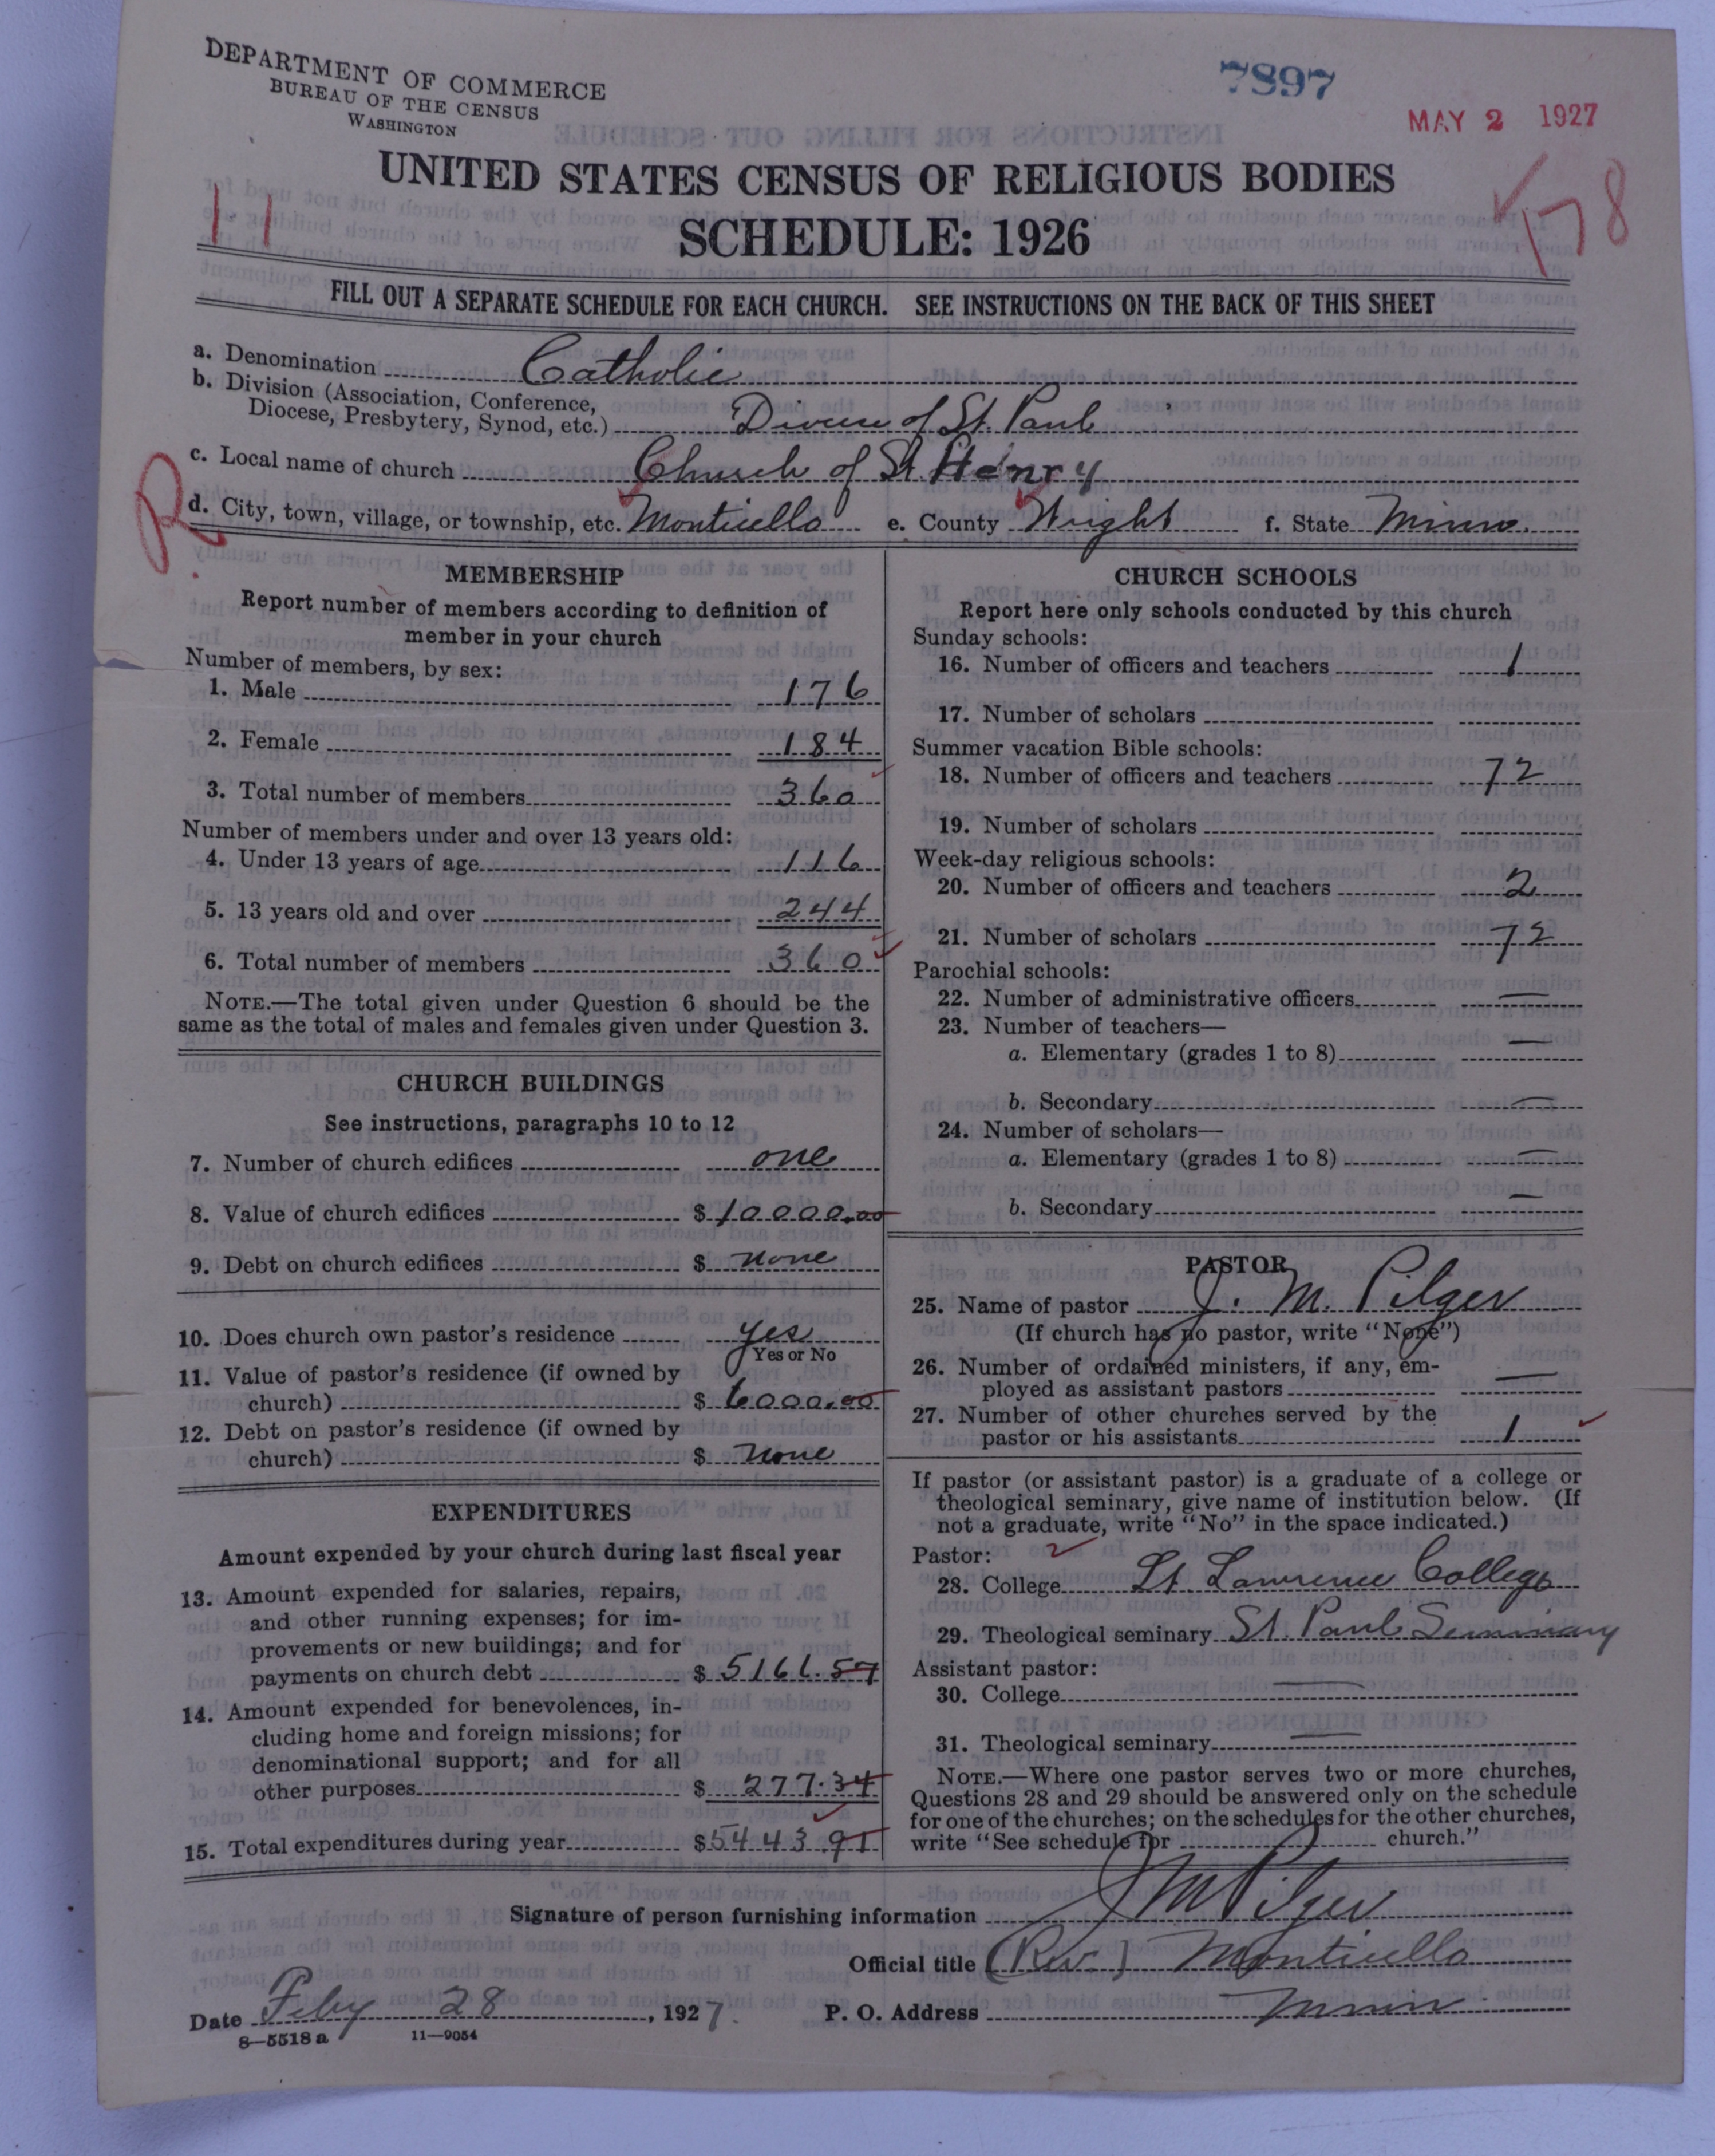 DEPARTMENT OF COMMERCE
BUREAU OF THE CENSUS
WASHINGTON
7897
MAY 2 1927
UNITED STATES CENSUS OF RELIGIOUS BODIES
11
178
SCHEDULE: 1926
FILL OUT A SEPARATE SCHEDULE FOR EACH CHURCH. SEE INSTRUCTIONS ON THE BACK OF THIS SHEET
a. Denomination Catholic
b. Division (Association, Conference,
Diocese, Presbytery, Synod, etc.) Diocese of St. Paul
c. Local name of church Church of St. Henry
R
d. City, town, village, or township, etc. Monticello e. County Wright f. State Minn.
MEMBERSHIP
Report number of members according to definition of
member in your church
Number of members, by sex:
1. Male 176
2. Female 184
3. Total number of members 360
Number of members under and over 13 years old:
4. Under 13 years of age 116
5. 13 years old and over 244
6. Total number of members 360
NOTE.—The total given under Question 6 should be the
same as the total of males and females given under Question 3.
CHURCH BUILDINGS
See instructions, paragraphs 10 to 12
7. Number of church edifices one
8. Value of church edifices $ 10000.00
9. Debt on church edifices $ none
10. Does church own pastor's residence yes
Yes or No
11. Value of pastor's residence (if owned by
church) $ 6000.00
12. Debt on pastor's residence (if owned by
church) $ none
EXPENDITURES
Amount expended by your church during last fiscal year
13. Amount expended for salaries, repairs,
and other running expenses; for im-
provements or new buildings; and for
payments on church debt $ 5166.57
14. Amount expended for benevolences, in-
cluding home and foreign missions; for
denominational support; and for all
other purposes $ 277.34
15. Total expenditures during year $ 5443.91
CHURCH SCHOOLS
Report here only schools conducted by this church
Sunday schools:
16. Number of officers and teachers 1
17. Number of scholars
Summer vacation Bible schools:
18. Number of officers and teachers 72
19. Number of scholars
Week-day religious schools:
20. Number of officers and teachers 2
21. Number of scholars 72
Parochial schools:
22. Number of administrative officers —
23. Number of teachers—
a. Elementary (grades 1 to 8) —
b. Secondary —
24. Number of scholars—
a. Elementary (grades 1 to 8) —
b. Secondary —
PASTOR
25. Name of pastor J. M. Pilger
(If church has no pastor, write "None")
26. Number of ordained ministers, if any, em-
ployed as assistant pastors —
27. Number of other churches served by the
pastor or his assistants 1
If pastor (or assistant pastor) is a graduate of a college or
theological seminary, give name of institution below. (If
not a graduate, write "No" in the space indicated.)
Pastor:
28. College St. Lawrence College
29. Theological seminary St. Paul Seminary
Assistant pastor:
30. College —
31. Theological seminary —
NOTE.—Where one pastor serves two or more churches,
Questions 28 and 29 should be answered only on the schedule
for one of the churches; on the schedules for the other churches,
write "See schedule for church."
Signature of person furnishing information J M Pilger
Official title (Rev.) Monticello
Date Feby 28, 1927. P. O. Address Minn
8—5518 a 11—9054